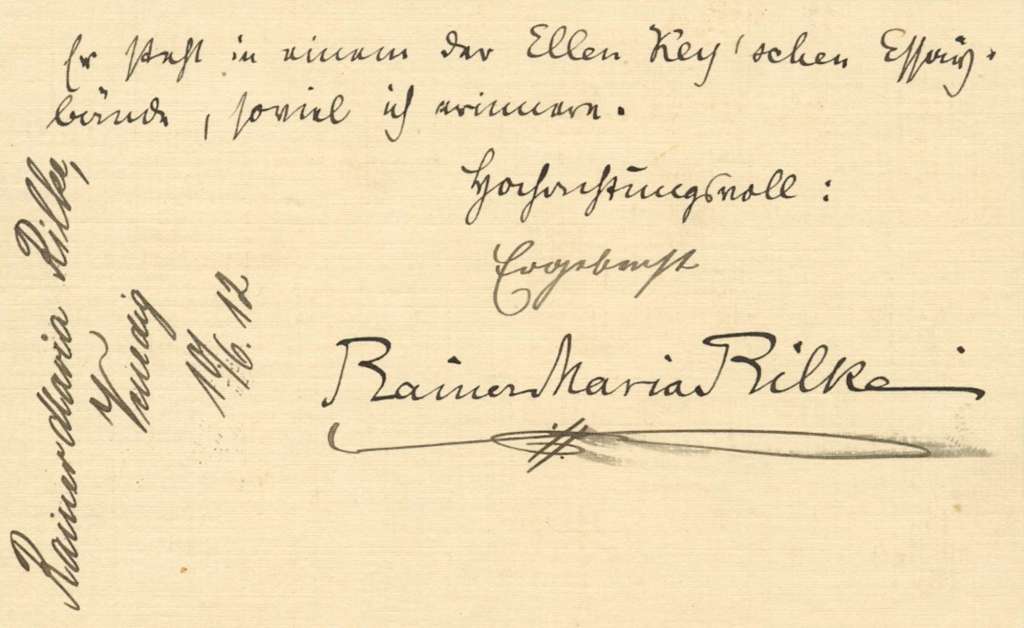 Er steht in einem der Ellen Key'schen Essay-
bände, soviel ich erinnere.
Hochachtungsvoll:
Ergebenst
Rainer Maria Rilke
Rainer Maria Rilke,
Venedig
6. 12